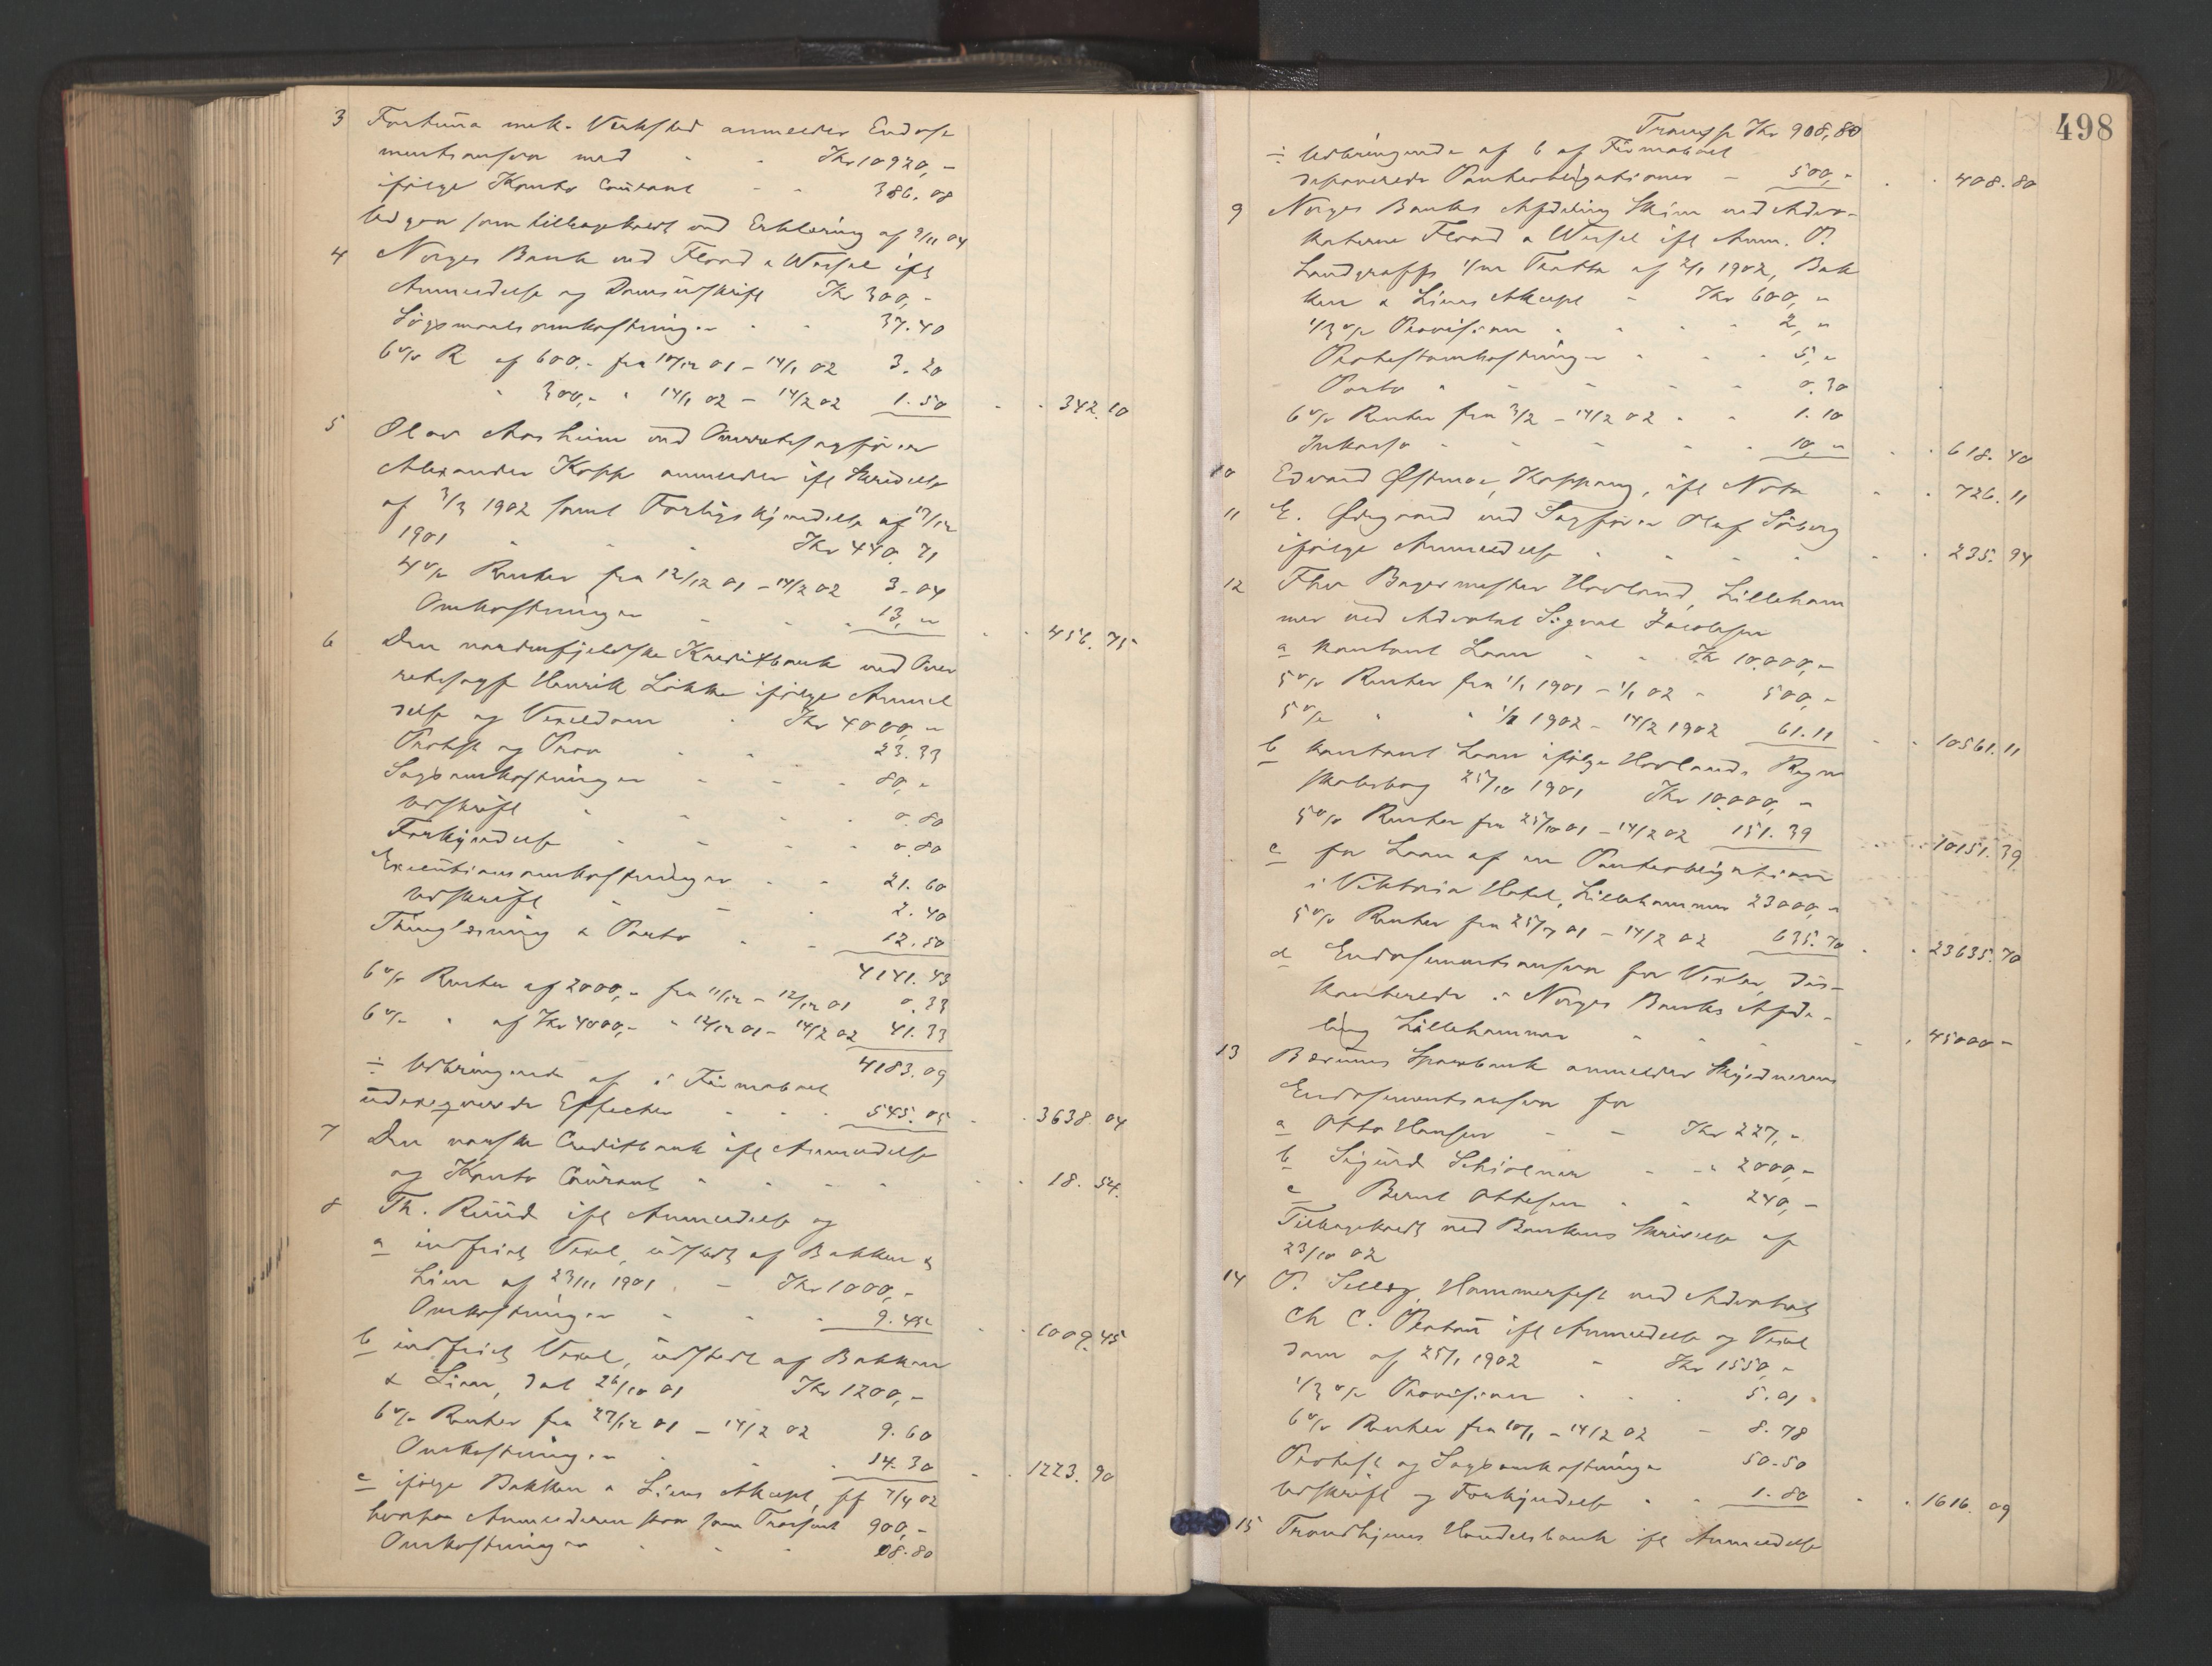 3 Fortuna mek. Verksted anmelder Endosse
mentsansvar med - - Kr 10920,-
ifølge Konto Courant - - 386.08
Udgaar som tilbagekaldt ved Erklæring af 9/11 04
4 Norges Bank ved Flood & Wessel ifl
Anmeldelse og Domsudskrift Kr 300,-
Søgsmaalsomkostninger - - 37.40
6 % R af 600,- fra 10/12 01 - 14/1 02 3.20
" 300,- " 14/1 02 - 14/2 02 1.50 - - 342.10
5 Olav Aasheim ved Overretssagfører
Alexander Kopp anmelder ifl Skrivelse
af 3/3 1902 samt Forligskjendelse af 17/12
1901 - - - Kr 440.71
4 % Renter fra 12/12 01 - 14/2 02 3.04
Omkostninger - - - 13,- - - 456.75
6 Den nordenfjeldske Kreditbank ved Over
retssagf Henrik Løkke ifølge Anmel
delse og Vexeldom - Kr 4000,-
Protest og Prov - - 23.33
Sagsomkostninger - - - 80,-
Udskrift - - - - 0.80
Forkyndelse - - - - 0.80
Executionsomkostninger - - 21.60
Udskrift - - - 2.40
Thinglæsning & Porto - - 12.50
4141.43
6 % Renter af 2000,- fra 11/12 - 12/12 01 0.33
6 % " af Kr 4000,- " 12/12 01 - 14/2 02 41.33
4183.09
÷ Udbringende af i Firmaboet
udexeqverede Effecter - - - 545.05 - - 3638.04
7 Den norske Creditbank ifl Anmeldelse
og Konto Courant - - - - - - 18.54.
8 Th. Ruud ifl Anmeldelse og
a indfriet Vexel, udstedt af Bakken &
Lien af 23/11 1901 - Kr 1000,-
Omkostninger - - - 9.45 - - 1009.45
b indfriet Vexel, udstedt af Bakken
& Lien, dat 26/10 01 Kr 1200,-
6 % Renter fra 27/12 01 - 14/2 02 9.60
Omkostninger - - - 14.30 - - 1223.90
c ifølge Bakken & Liens Akcept, pf 7/4 02
hvorpaa Anmelderen staar som Trassent 900,-
Omkostninger - - - 08.80
498
Transp Kr 908,80
÷ Udbringende af 6 af Firmaboet
deponerede Panteobligationer - 500,- - - 408.80
9 Norges Banks Afdeling Skien ved Advo-
katerne Flood & Wessel ifl Anm. P.
Landgraffs 1/m Tratta af 2/1 1902, Bak
ken & Liens Akcept - Kr 600,-
1/3 % Provision - - - - 2,-
Protestomkostninger - - - 5,-
Porto - - - - - 0.30
6 % Renter fra 3/2 - 14/2 02 - - 1.10
Inkasso - - - - - 10,- - - 618.40
10 Edvard Østmoe, Koppang, ifl Nota - - 726.11
11 E. Ødegaard ved Sagfører Oluf Søberg
ifølge Anmeldelse - - - - - - 235.94
12 Thv Bagermester Hovland, Lilleham
mer ved Advokat Sigvat Jacobsen
a kontant Laan - - Kr 10.000,-
5 % Renter fra 1/1 1901 - 1/1 02 - 500,-
5 % " " 1/1 1902 - 14/2 1902 61.11 - - 10561.11
b kontant Laan ifølge Hovlands Regn
skabsbog 25/10 1901 Kr 10.000,-
5 % Renter fra 25/10 01 - 14/2 02 151.39 - - 10151.39
c for Laan af en Panteobligation
i Viktoria Hotel, Lillehammer 23000,-
5 % Renter fra 25/7 01 - 14/2 02 635.70 - - 23635.70
d Endossementsansvar for Vexler, dis-
konterede i Norges Banks Afde-
ling Lillehammer - - - - - 45000-
13 Bærums Sparebank anmelder Skyldnerens
Endossementsansvar for
a Otto Hansen - - Kr 227,-
b Sigurd Schiølner - - " 2000,-
c Bernt Ottesen - - 240,-
Tilbagekaldt ved Bankens Skrivelse af
23/10 02
14 P. , Hammerfest ved Advokat
Ch C. ifl Anmeldelse og Vexel
dom af 25/1 1902 - Kr 1550,-
1/3 % Provision - - - 5.01
6 % Renter fra 10/1 - 14/2 02 - 8.78
Protest og Sagsomkostninger 50.50
Udskrift og Forkyndelse - - 1.80 - - 1616.09
15 Trondhjems Handelsbank ifl Anmeldelse